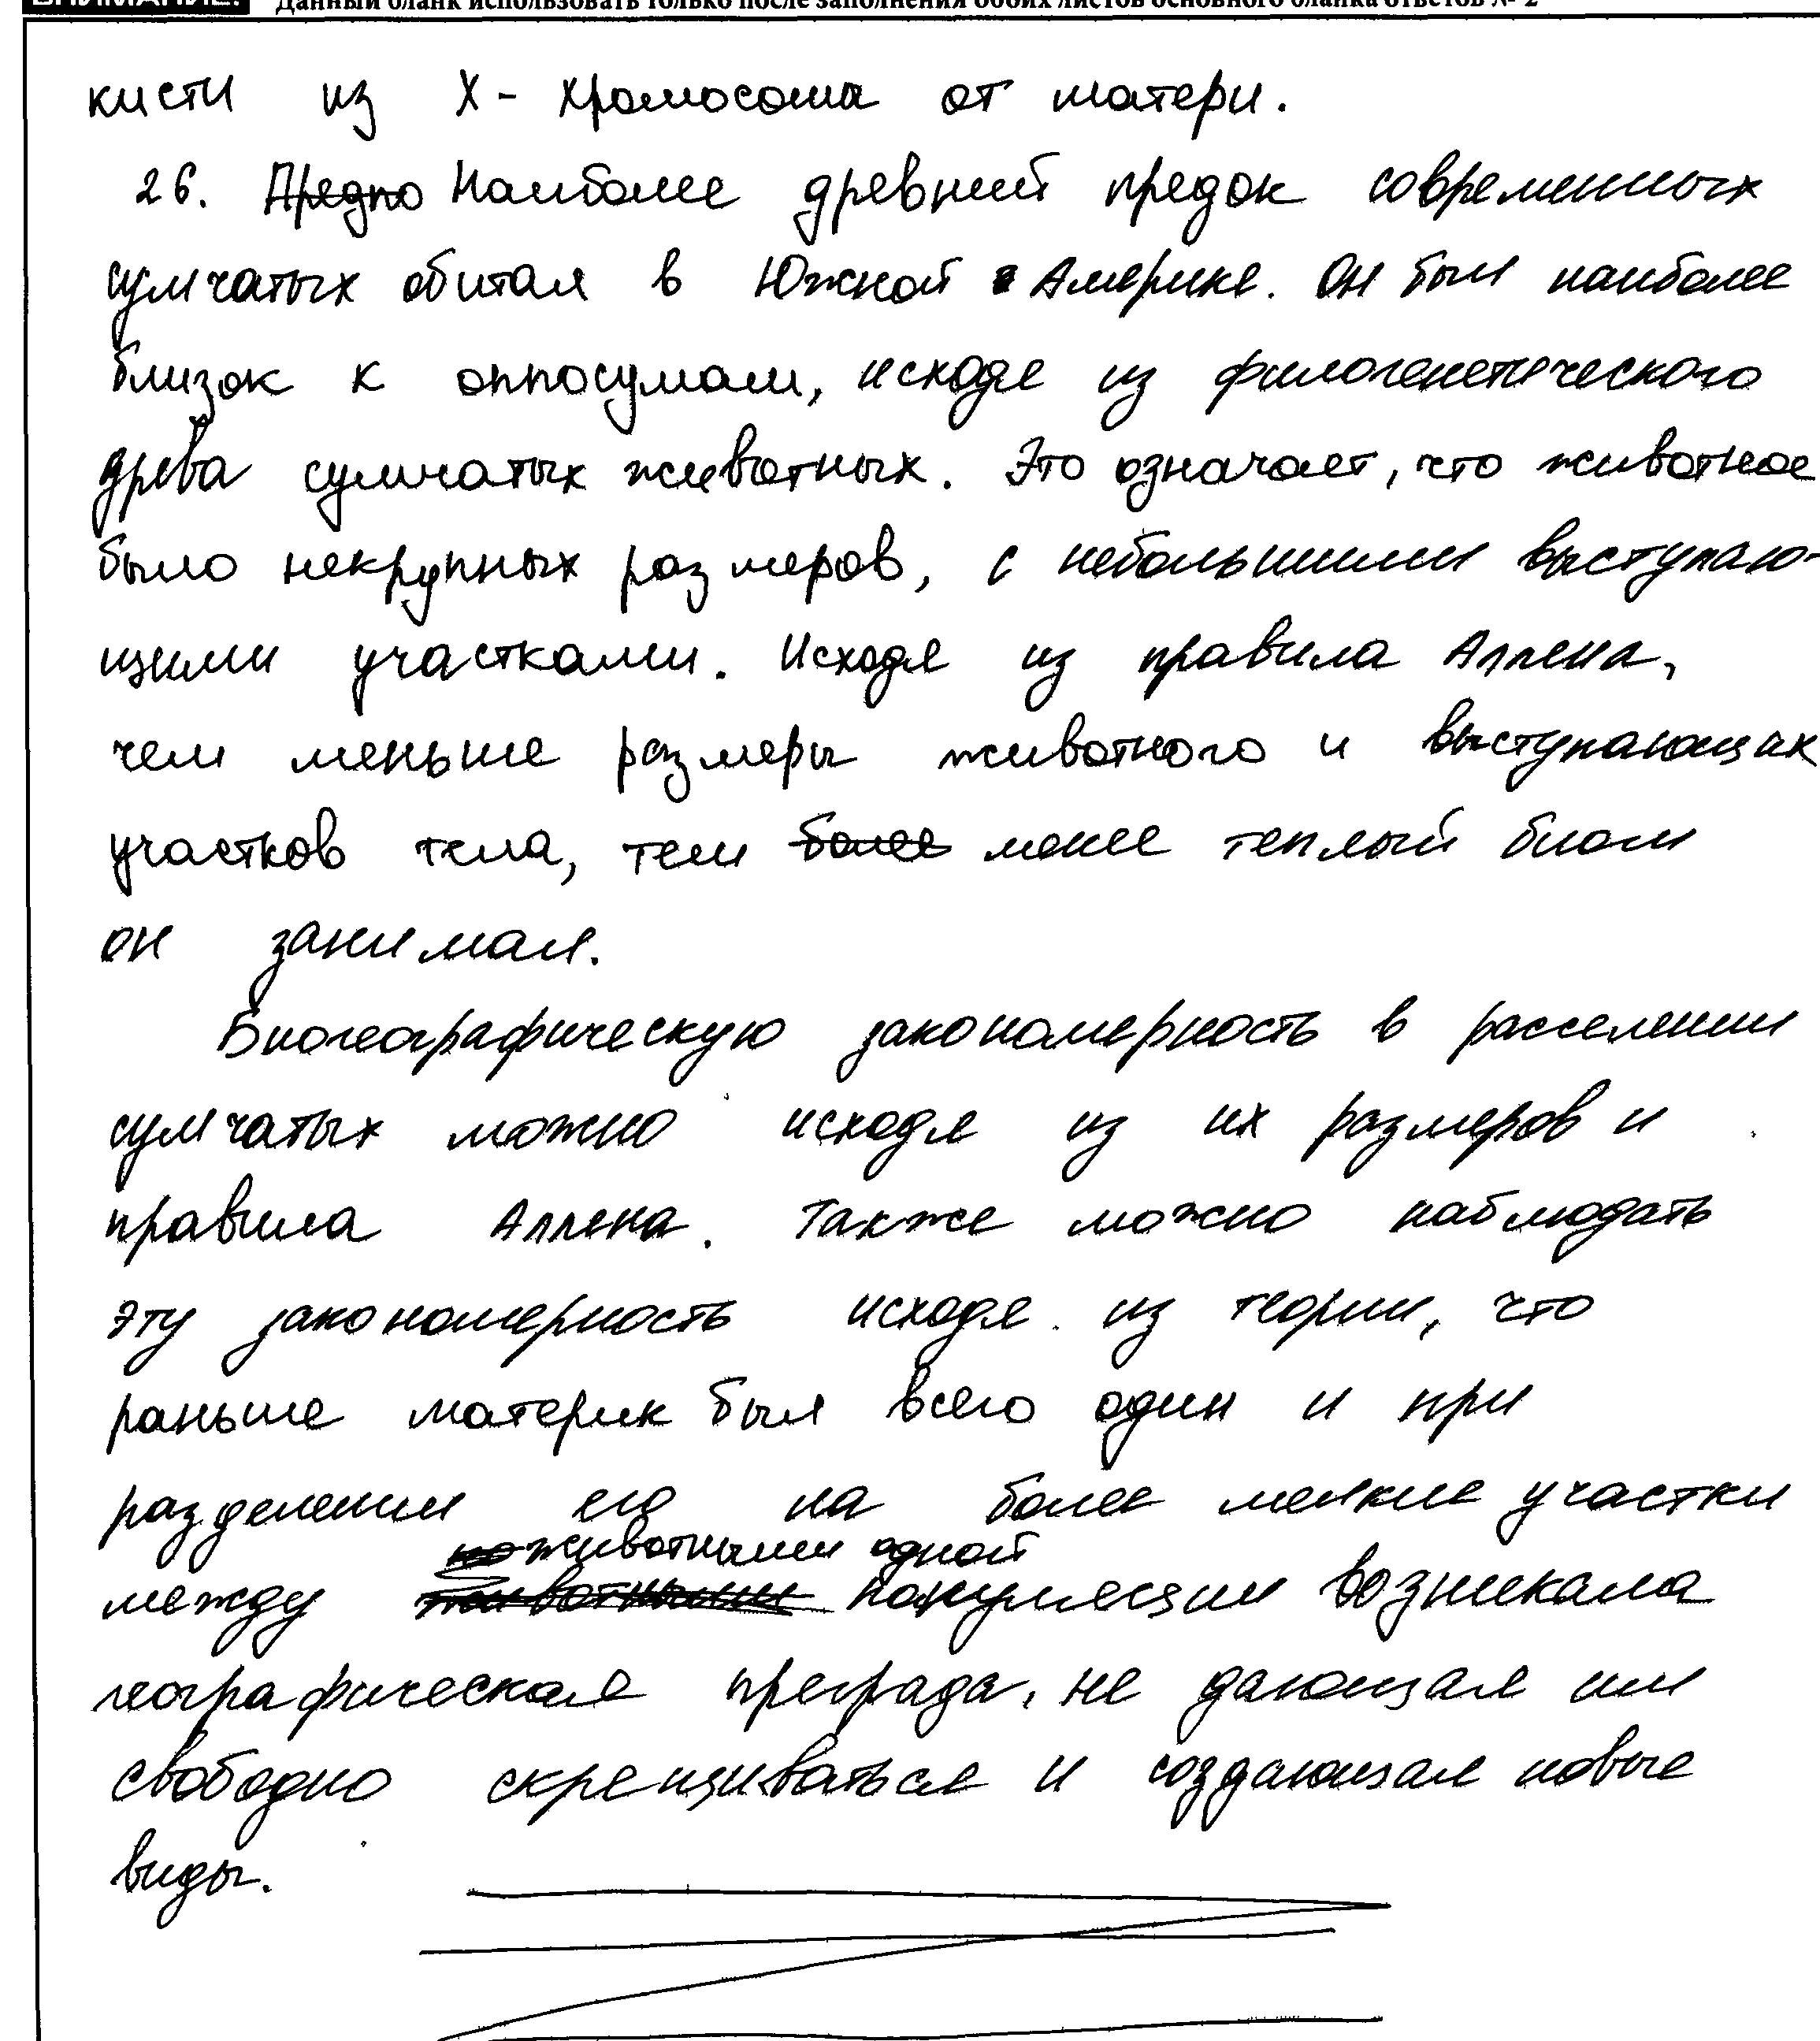 ВНИМАНИЕ! Данный бланк использовать только после заполнения обоих листов основного бланка ответов № 2
кисти из X - хромосомы от матери.
26. Предпо Наиболее древний предок современных
сумчатых обитал в Южной Америке. Он был наиболее
близок к оппосумам, исходя из филогенетического
древа сумчатых животных. Это означает, что животное
было некрупных размеров, с небольшими выступаю-
щими участками. Исходя из правила Аллена,
чем меньше размеры животного и выступающих
участков тела, тем более менее теплый биом
он занимал.
Биогеографическую закономерность в расселении
сумчатых можно исходя из их размеров и
правила Аллена. Также можно наблюдать
эту закономерность исходя из теории, что
раньше материк был всего один и при
разделении его на более мелкие участки
животными одной
между животными популяции возникала
географическая преграда, не дающая им
свободно скрещиваться и создающая новые
виды.